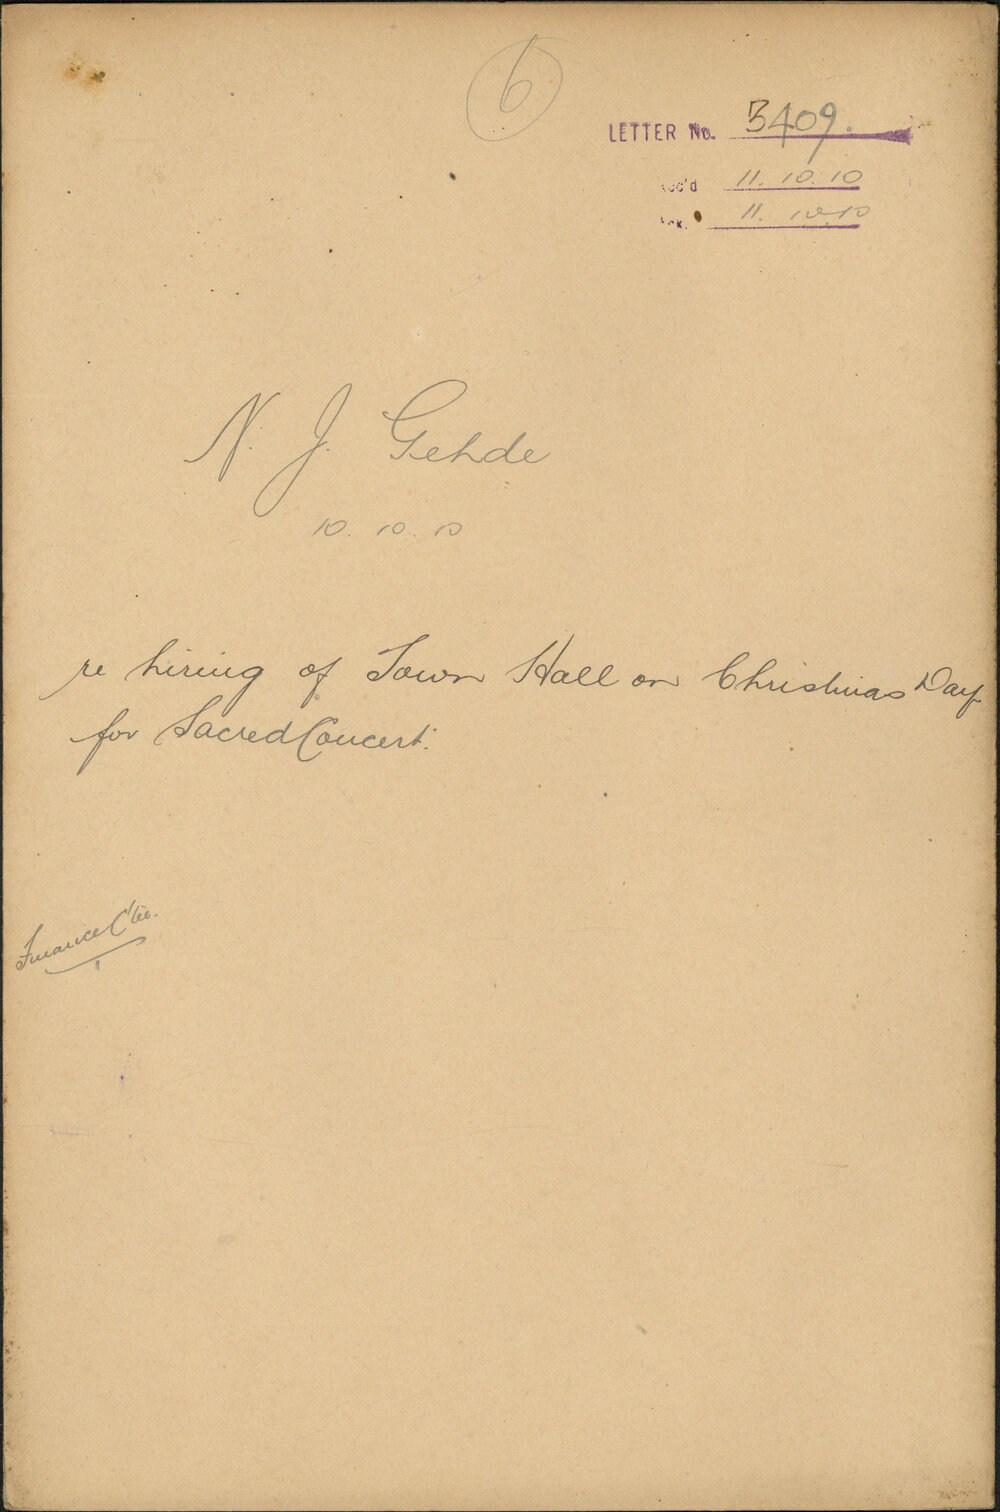 6
LETTER No. 3409.
Rec'd 11.10.10
Ack. 11.10.10
N. J. Gehde
10.10.10
re hiring of Town Hall on Christmas Day
for Sacred Concert.
Finance C'tee.